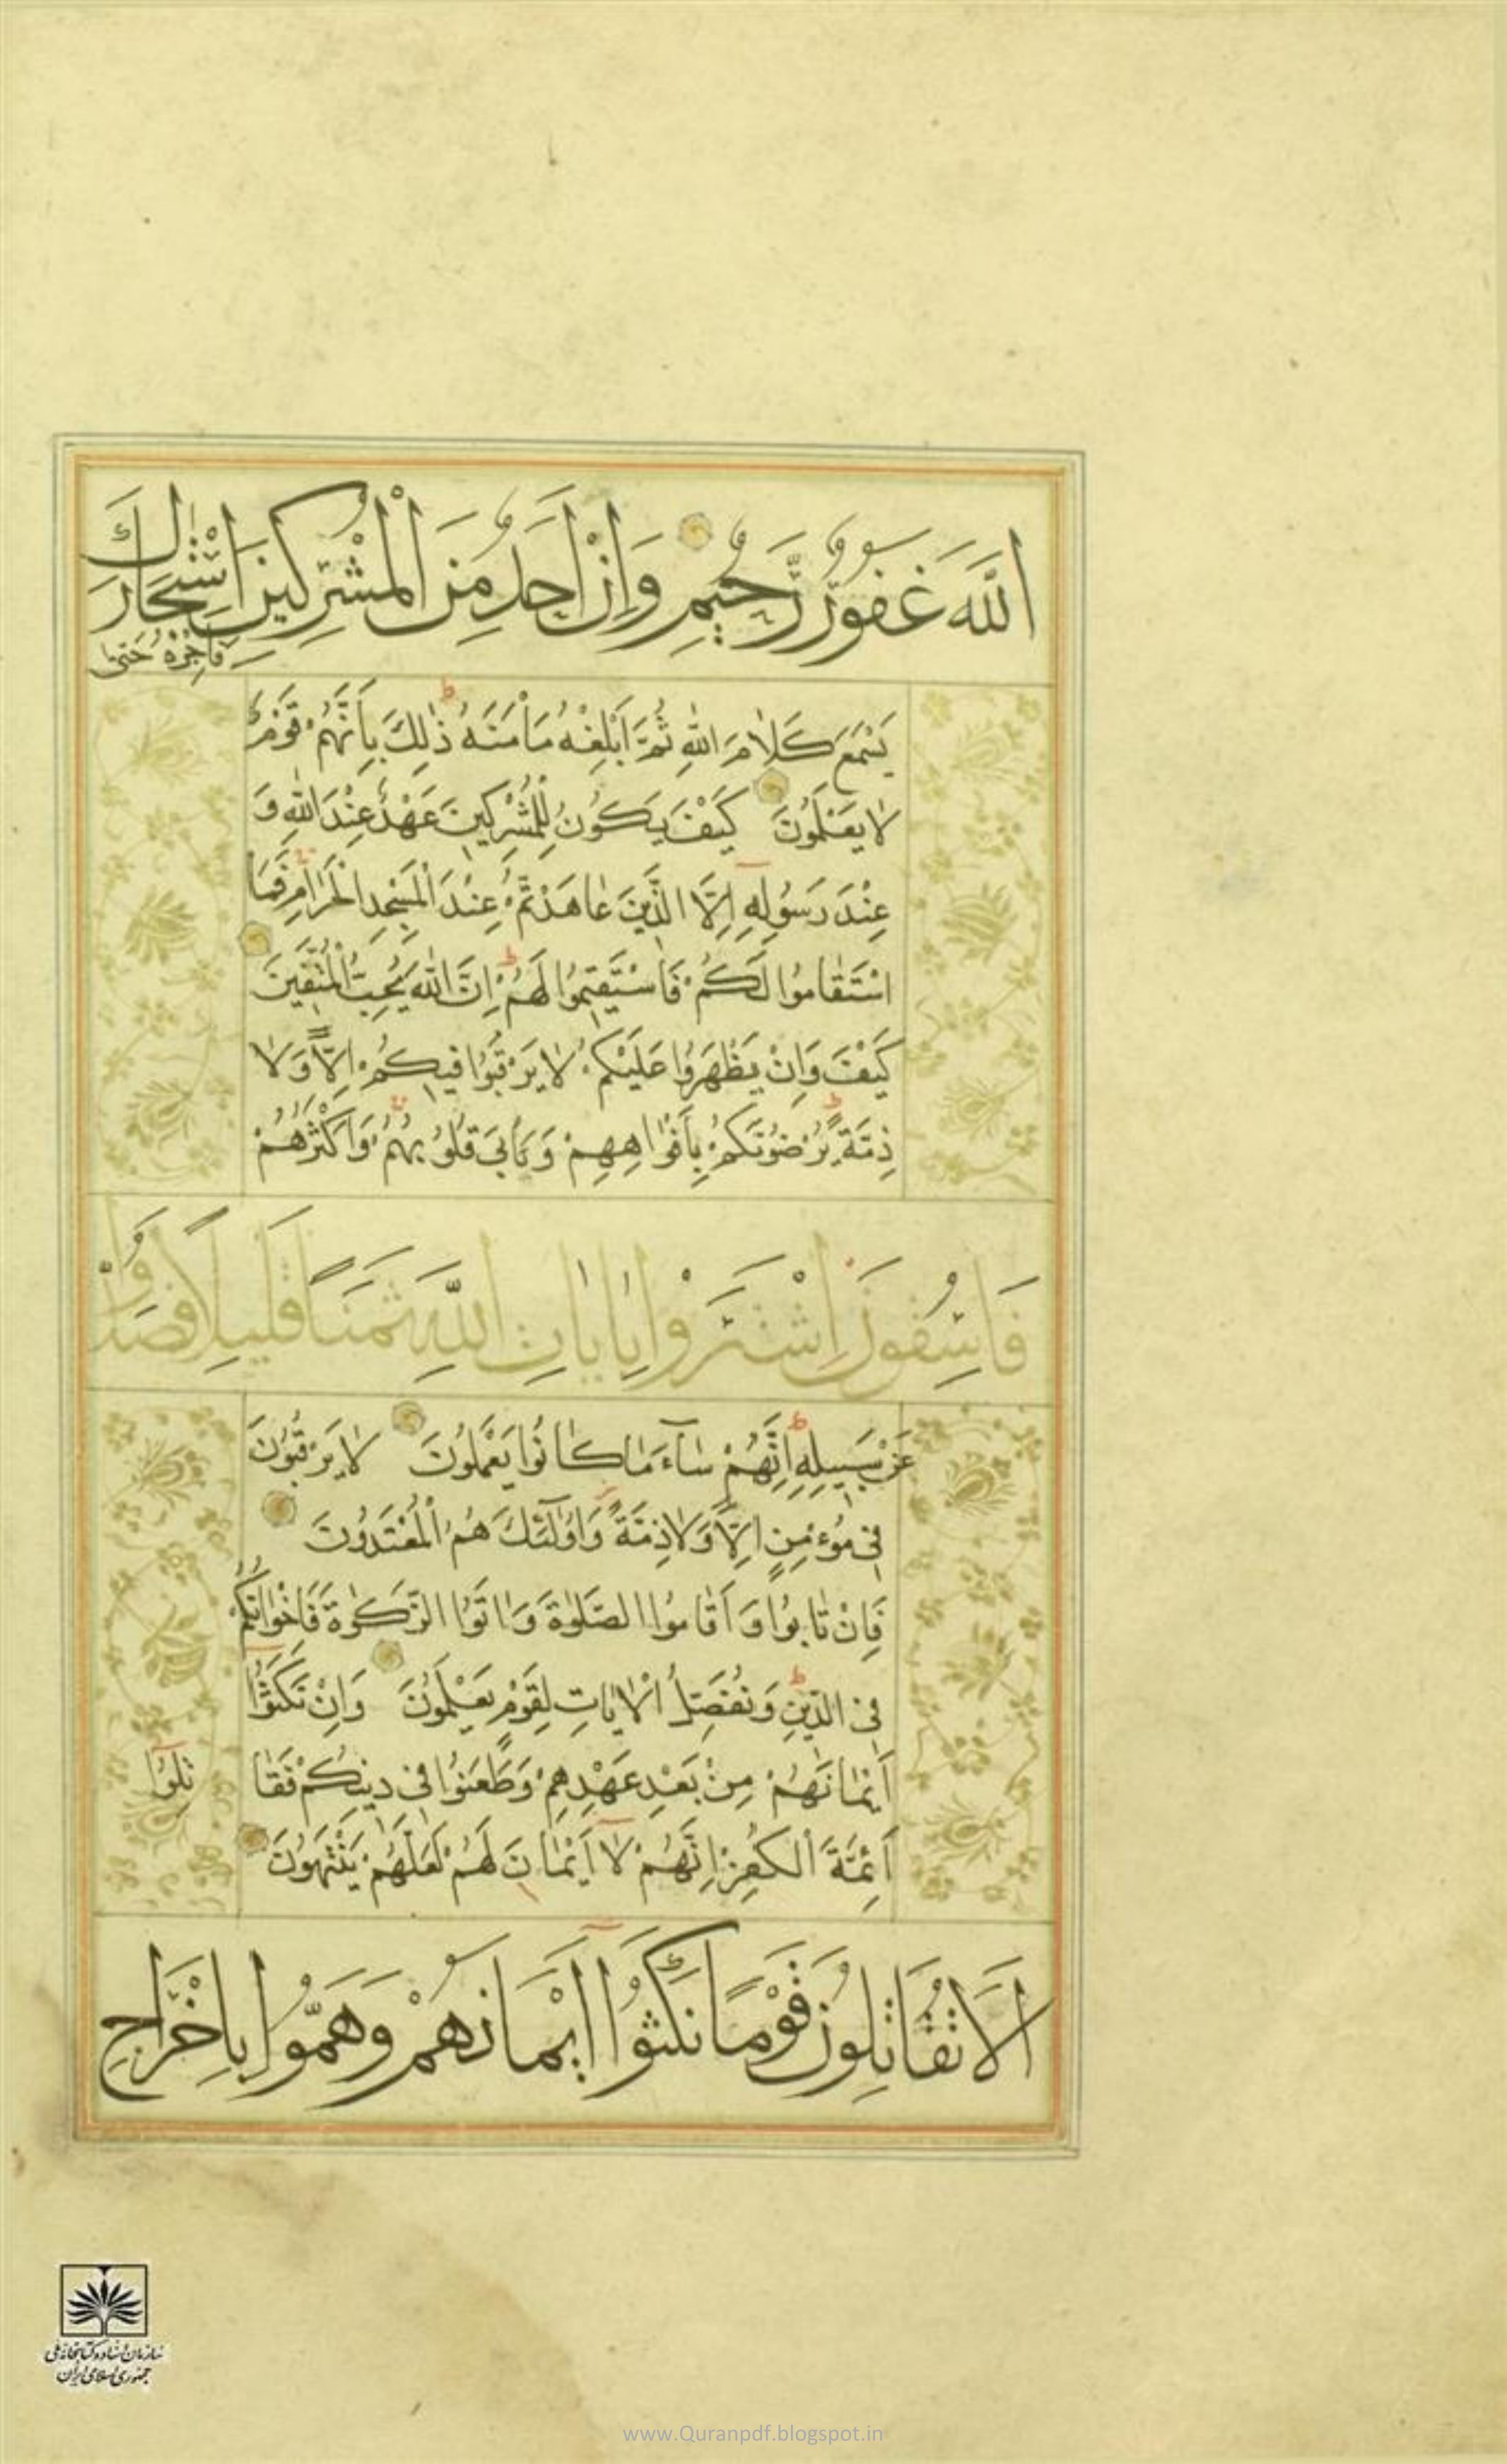 اللَّهَ غَفُورٌ رَّحِيمٌ وَإِنْ أَحَدٌ مِنَ الْمُشْرِكِينَ اسْتَجَارَكَ
فَأَجِرْهُ حَتَّى
يَسْمَعَ كَلَامَ اللَّهِ ثُمَّ أَبْلِغْهُ مَأْمَنَهُ ط ذَلِكَ بِأَنَّهُمْ قَوْمٌ
لَا يَعْلَمُونَ كَيْفَ يَكُونُ لِلْمُشْرِكِينَ عَهْدٌ عِنْدَ اللَّهِ وَ
عِنْدَ رَسُولِهِ إِلَّا الَّذِينَ عَاهَدْتُمْ عِنْدَ الْمَسْجِدِ الْحَرَامِ فَمَا
اسْتَقَامُوا لَكُمْ فَاسْتَقِيمُوا لَهُمْ ط إِنَّ اللَّهَ يُحِبُّ الْمُتَّقِينَ
كَيْفَ وَإِنْ يَظْهَرُوا عَلَيْكُمْ لَا يَرْقُبُوا فِيكُمْ إِلًّا وَلَا
ذِمَّةً ط يُرْضُونَكُمْ بِأَفْوَاهِهِمْ وَتَأْبَى قُلُوبُهُمْ وَأَكْثَرُهُمْ
فَاسِقُونَ اشْتَرَوْا بِآيَاتِ اللَّهِ ثَمَنًا قَلِيلًا فَصَدُّوا
عَنْ سَبِيلِهِ ط إِنَّهُمْ سَاءَ مَا كَانُوا يَعْمَلُونَ لَا يَرْقُبُونَ
فِي مُؤْمِنٍ إِلًّا وَلَا ذِمَّةً وَأُولَئِكَ هُمُ الْمُعْتَدُونَ
فَإِنْ تَابُوا وَأَقَامُوا الصَّلَوٰةَ وَآتَوُا الزَّكَوٰةَ فَإِخْوَانُكُمْ
فِي الدِّينِ ط وَنُفَصِّلُ الْآيَاتِ لِقَوْمٍ يَعْلَمُونَ وَإِنْ نَكَثُوا
أَيْمَانَهُمْ مِنْ بَعْدِ عَهْدِهِمْ وَطَعَنُوا فِي دِينِكُمْ فَقَا
تِلُوا
أَئِمَّةَ الْكُفْرِ إِنَّهُمْ لَا أَيْمَانَ لَهُمْ لَعَلَّهُمْ يَنْتَهُونَ
أَلَا تُقَاتِلُونَ قَوْمًا نَكَثُوا أَيْمَانَهُمْ وَهَمُّوا بِإِخْرَاجِ
سازمان اسناد و کتابخانه ملی
جمهوری اسلامی ایران
www.Quranpdf.blogspot.in